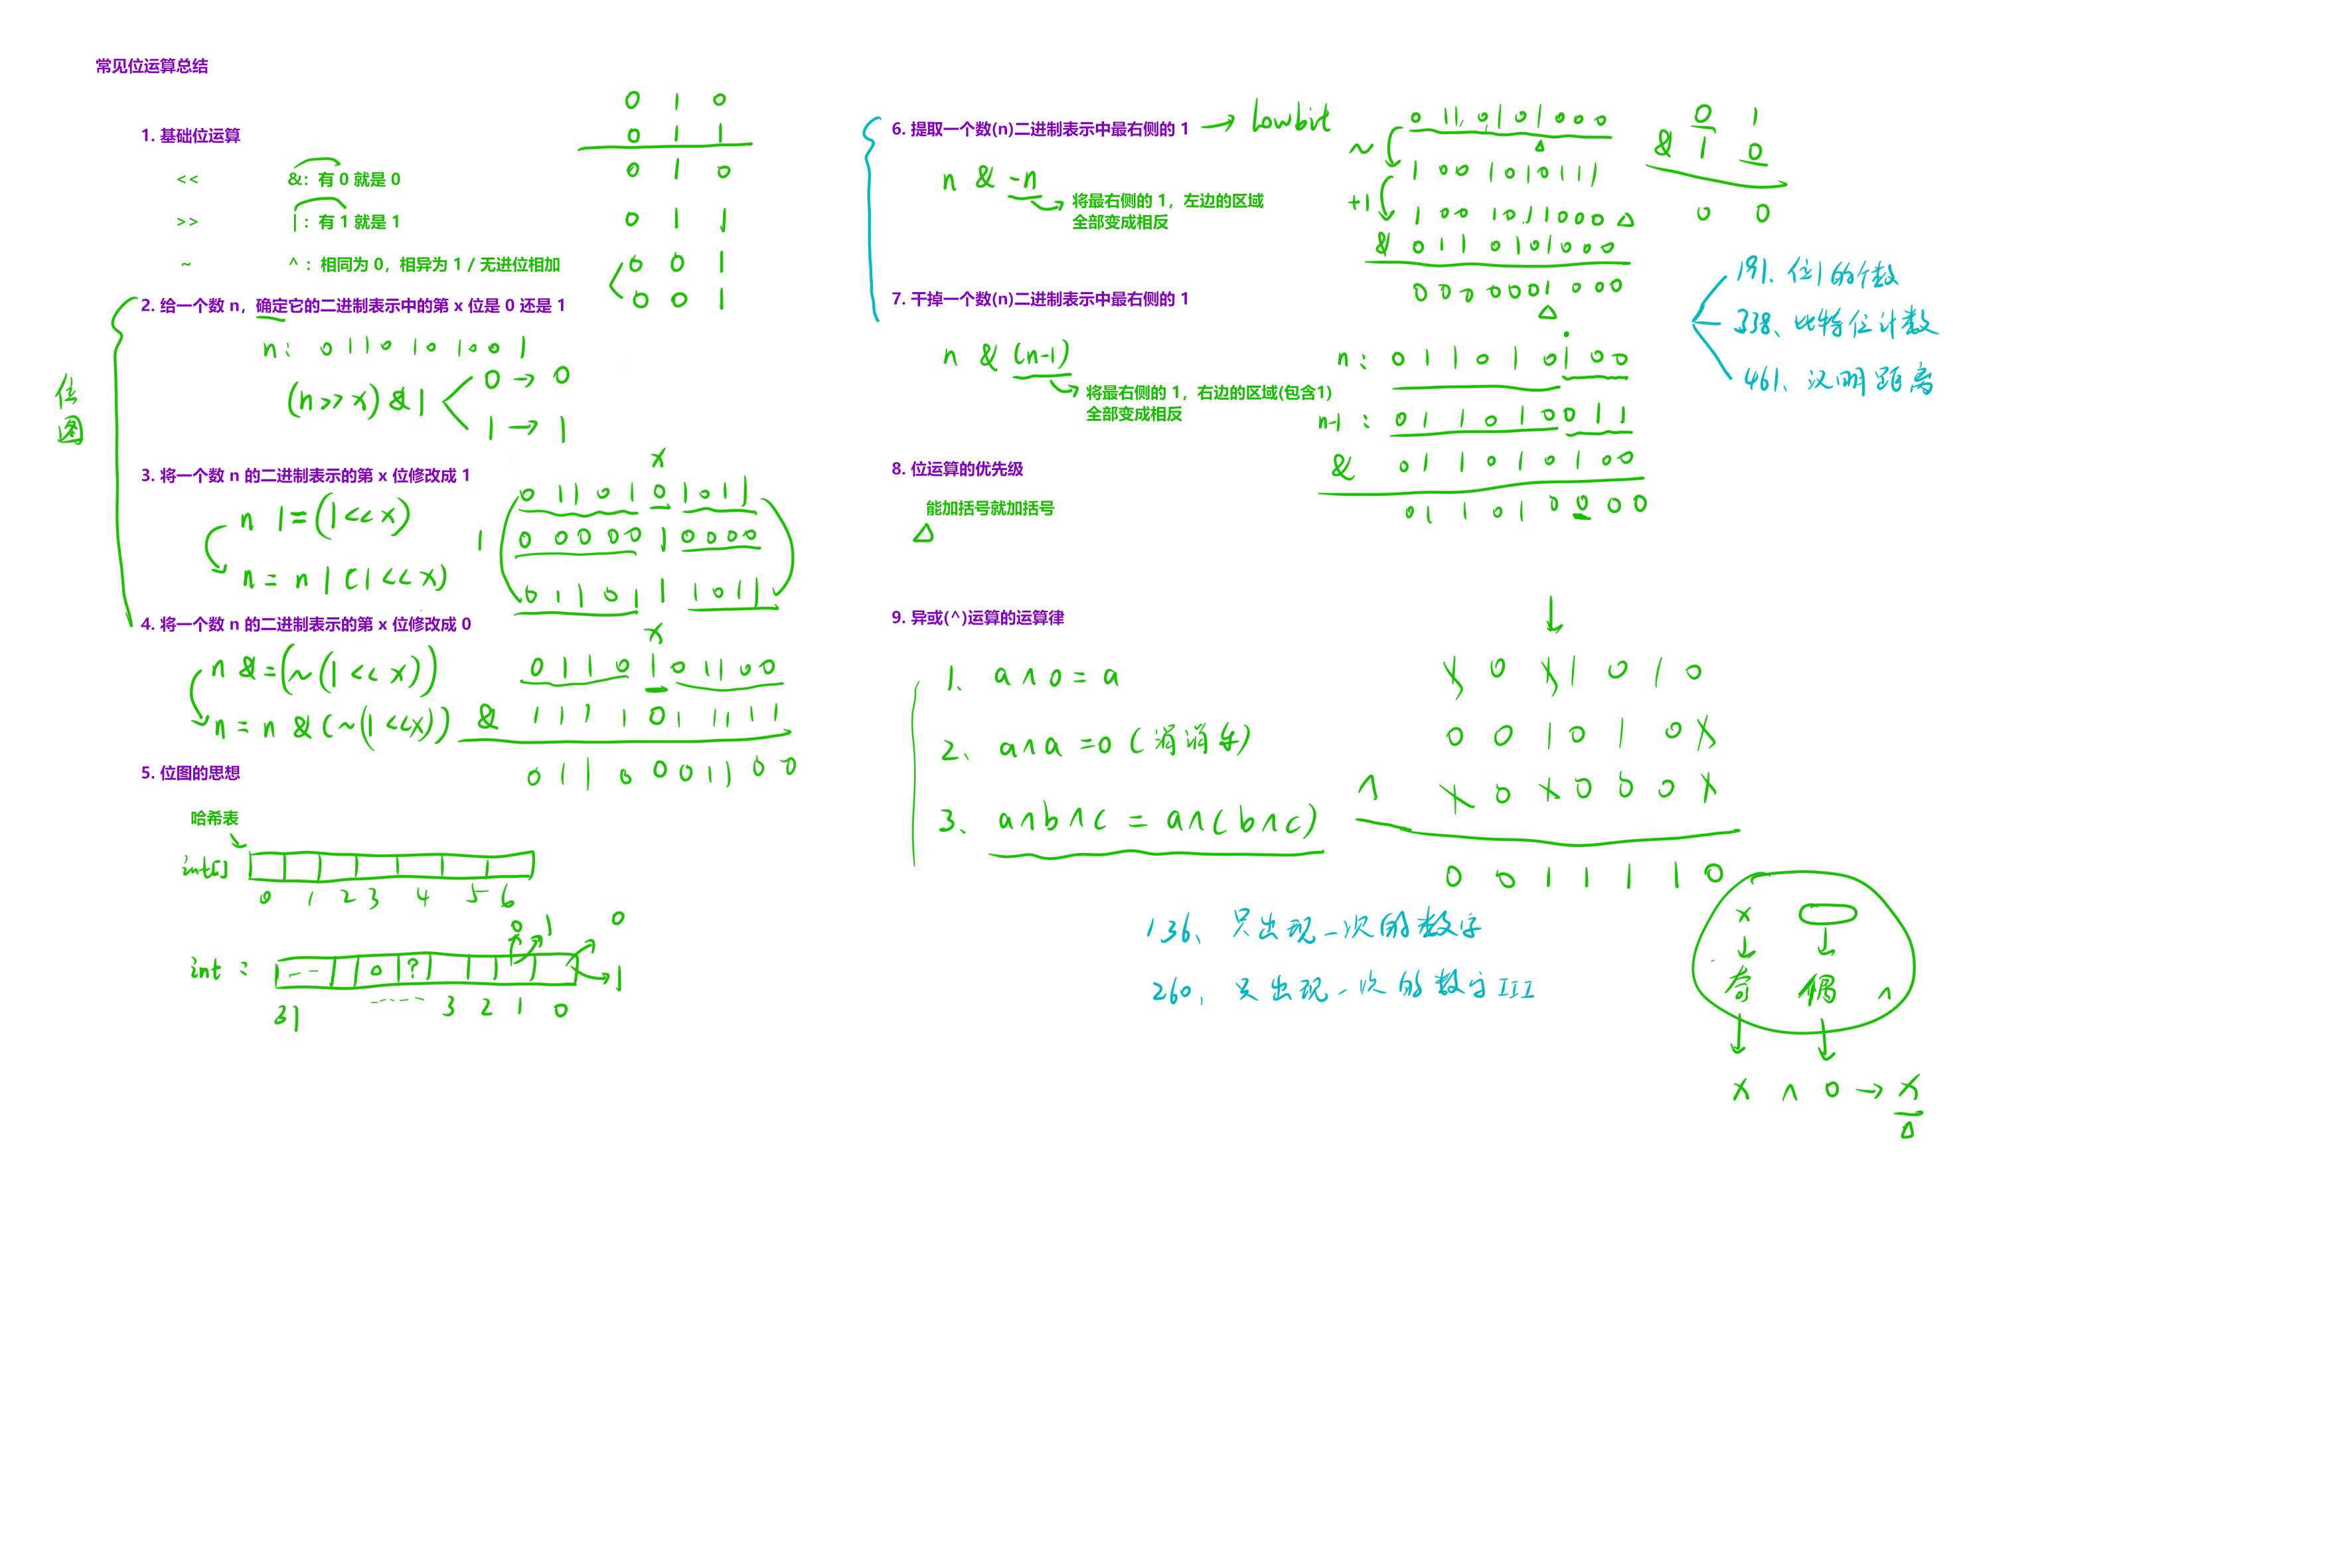 常见位运算总结
1. 基础位运算
<<
&：有 0 就是 0
>>
|：有 1 就是 1
~
^：相同为 0，相异为 1 / 无进位相加
0 1 0
0 1 1
0 1 0
0 1 1
0 0 1
0 0 1
位图
2. 给一个数 n，确定它的二进制表示中的第 x 位是 0 还是 1
n: 0 1 1 0 1 0 1 0 0 1
(n >> x) & 1
0 → 0
1 → 1
3. 将一个数 n 的二进制表示的第 x 位修改成 1
n |= (1 << x)
n = n | (1 << x)
x
0 1 1 0 1 0 1 0 1 1
| 0 0 0 0 0 1 0 0 0 0
0 1 1 0 1 1 1 0 1 1
4. 将一个数 n 的二进制表示的第 x 位修改成 0
n &= (~(1 << x))
n = n & (~(1 << x))
x
0 1 1 0 1 0 1 1 0 0
& 1 1 1 1 0 1 1 1 1 1
0 1 1 0 0 0 1 1 0 0
5. 位图的思想
哈希表
int[]
0 1 2 3 4 5 6
0 1 0
int : 0 ? 1
31 ----- 3 2 1 0
6. 提取一个数(n)二进制表示中最右侧的 1 → lowbit
n & -n
将最右侧的 1，左边的区域
全部变成相反
0 1 1 0 1 0 1 0 0 0
~ 1 0 0 1 0 1 0 1 1 1
+1 1 0 0 1 0 1 1 0 0 0
& 0 1 1 0 1 0 1 0 0 0
0 0 0 0 0 0 1 0 0 0
0 1
& 1 0
0 0
191、位1的个数
338、比特位计数
461、汉明距离
7. 干掉一个数(n)二进制表示中最右侧的 1
n & (n-1)
将最右侧的 1，右边的区域(包含1)
全部变成相反
n : 0 1 1 0 1 0 1 0 0
n-1 : 0 1 1 0 1 0 0 1 1
& 0 1 1 0 1 0 1 0 0
0 1 1 0 1 0 0 0 0
8. 位运算的优先级
能加括号就加括号
9. 异或(^)运算的运算律
1、 a ^ 0 = a
2、 a ^ a = 0 (消消乐)
3、 a ^ b ^ c = a ^ (b ^ c)
0 1 0 1 0
0 0 1 0 1 0
^ 0 0 0 0 0
0 0 1 1 1 1 0
136、只出现一次的数字
260、只出现一次的数字 III
x
奇 偶 ^
x ^ 0 → x